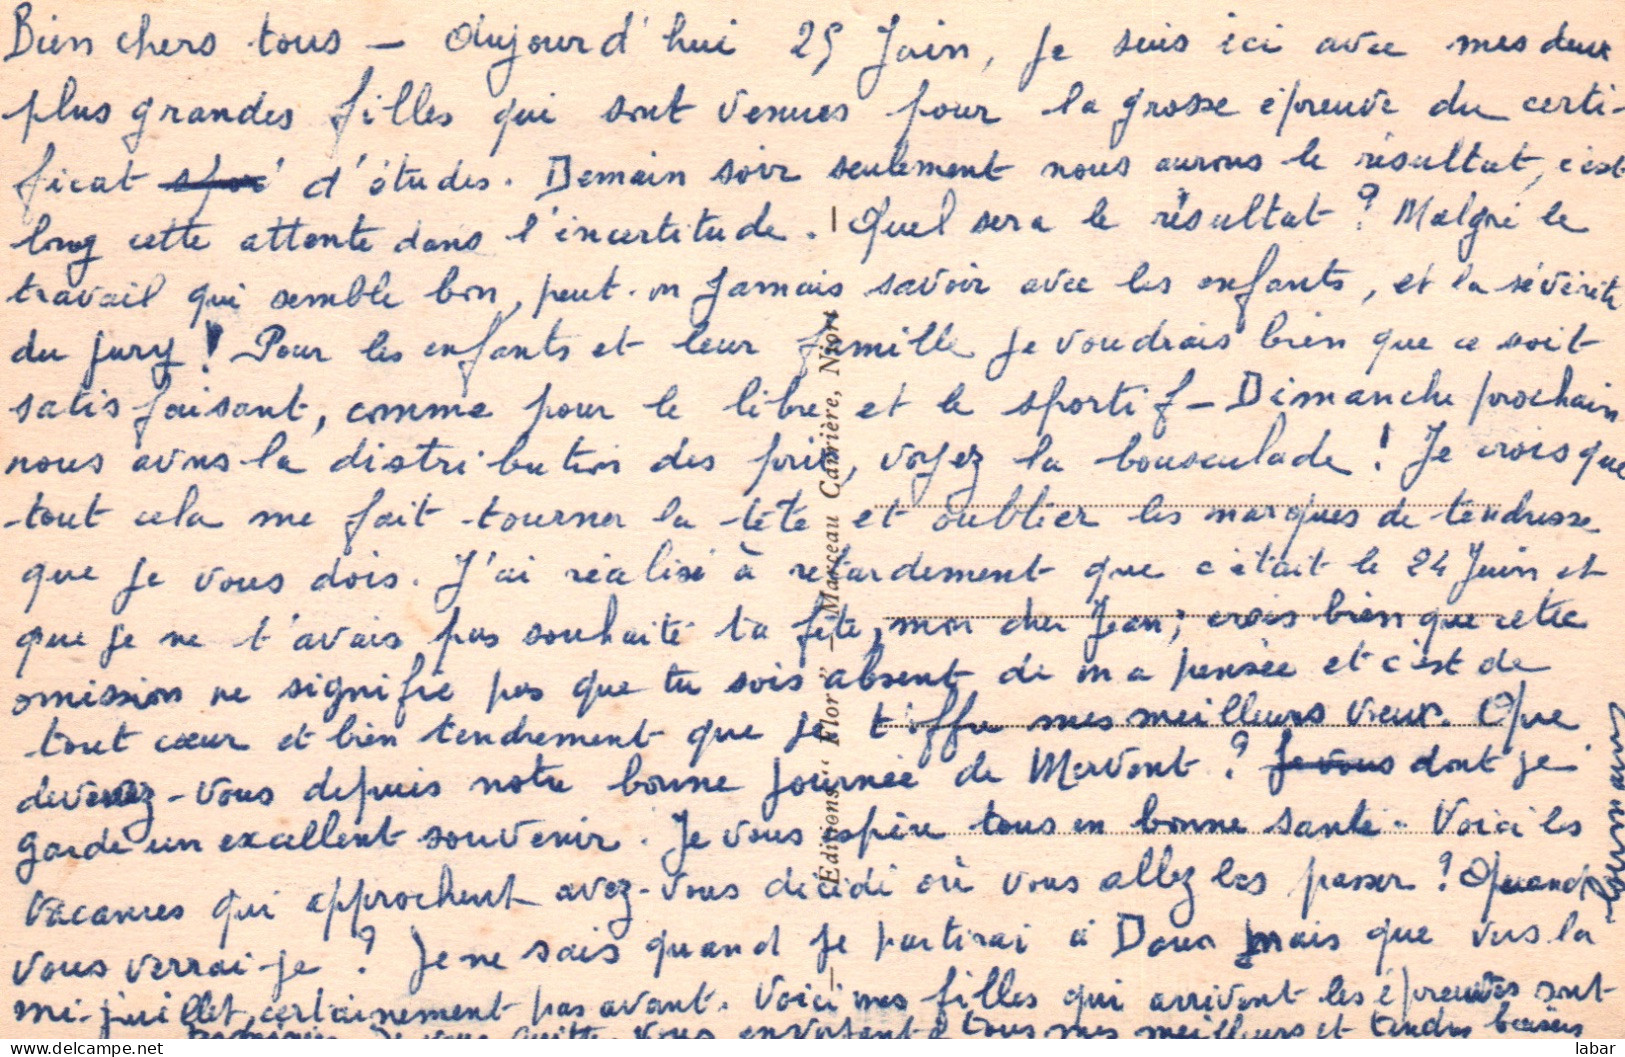 Bien chers tous — Aujourd'hui 25 Juin, je suis ici avec mes deux
plus grandes filles qui sont venues pour la grosse épreuve du certi-
ficat d'études. Demain soir seulement nous aurons le résultat, c'est
long cette attente dans l'incertitude. — Quel sera le résultat ? Malgré le
travail qui semble bon, peut-on jamais savoir avec les enfants, et la sévérité
du jury ! Pour les enfants et leur famille je voudrais bien que ce soit
satisfaisant, comme pour le libre et le sportif — Dimanche prochain
nous avons la distribution des prix, voyez la bousculade ! Je crois que
tout cela me fait tourner la tête et oublier les marques de tendresse
que je vous dois. J'ai réalisé à retardement que c'était le 24 Juin et
que je ne t'avais pas souhaité ta fête, mon cher Jean ; crois bien que cette
omission ne signifie pas que tu sois absent de ma pensée et c'est de
tout cœur et bien tendrement que je t'offre mes meilleurs vœux. Que
devenez-vous depuis notre bonne journée de Mervent ? Je vous dont je
garde un excellent souvenir. Je vous espère tous en bonne santé. Voici les
vacances qui approchent avez-vous décidé où vous allez les passer ? Quand
vous verrai-je ? Je ne sais quand je partirai à mais que vers la
mi-juillet, certainement pas avant. Voici mes filles qui arrivent les épreuves sont
Je vous quitte vous envoyant à tous mes meilleurs et tendres baisers
Editions "Flor" — Marceau Carrière, Niort
labar